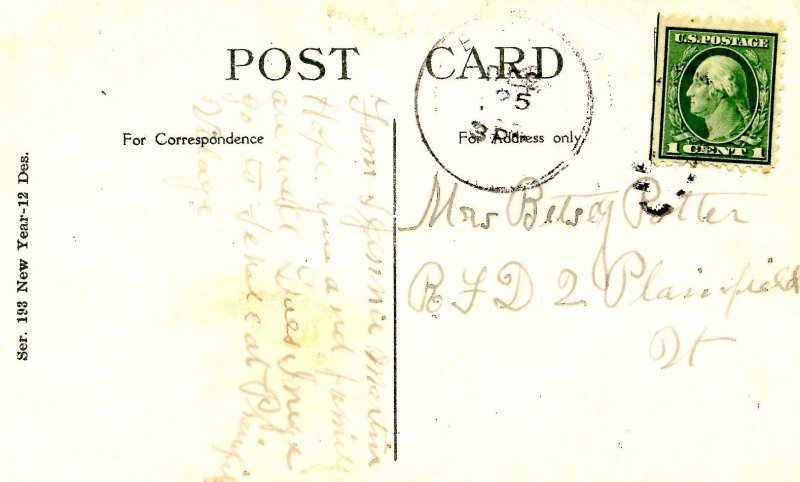 POST CARD
For Correspondence
For Address only
U.S. POSTAGE
1 CENT 1
25
Mrs Betsey Potter
R F D 2 Plainfield
Vt
From Jennie Martin
Hope you and family
are well Does Inez
go to school at Plainfield
Village
Ser. 193 New Year-12 Des.